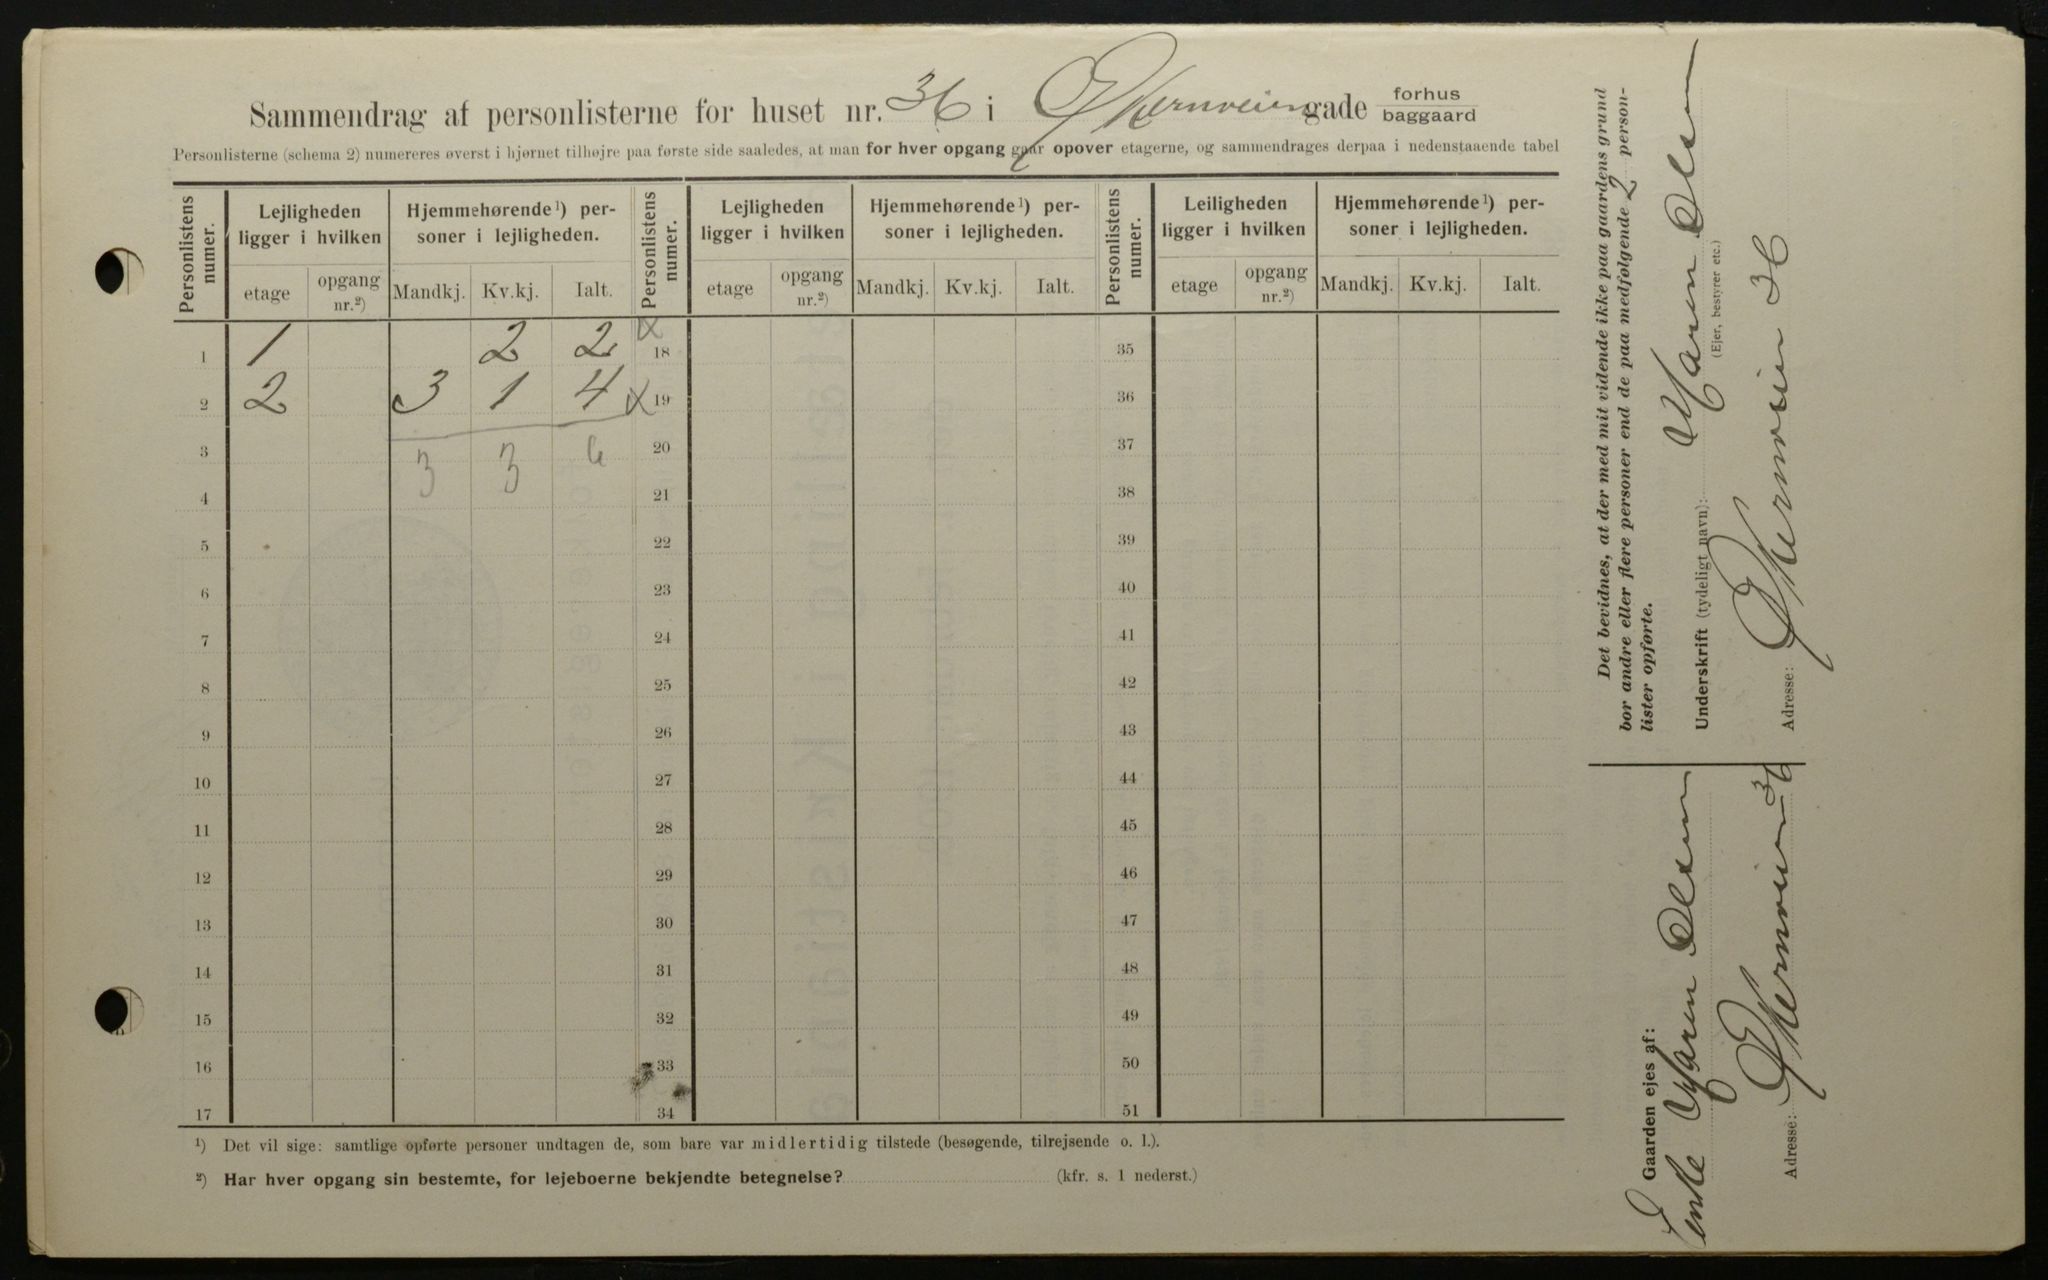 Sammendrag af personlisterne for huset nr. 36 i Ekernveien gade forhus baggaard
Personlisterne (schema 2) numereres øverst i hjørnet tilhøjre paa første side saaledes, at man for hver opgang gaar opover etagerne, og sammendrages derpaa i nedenstaaende tabel
Personlistens numer. Lejligheden ligger i hvilken Hjemmehørende¹) personer i lejligheden. Personlistens numer. Lejligheden ligger i hvilken Hjemmehørende¹) personer i lejligheden. Personlistens numer. Leiligheden ligger i hvilken Hjemmehørende¹) personer i lejligheden.
etage opgang nr.²) Mandkj. Kv.kj. Ialt. etage opgang nr.²) Mandkj. Kv.kj. Ialt. etage opgang nr.²) Mandkj. Kv.kj. Ialt.
1 1 2 2 18 35
2 2 3 1 4 19 36
3 3 3 6 20 37
4 21 38
5 22 39
6 23 40
7 24 41
8 25 42
9 26 43
10 27 44
11 28 45
12 29 46
13 30 47
14 31 48
15 32 49
16 33 50
17 34 51
¹) Det vil sige: samtlige opførte personer undtagen de, som bare var midlertidig tilstede (besøgende, tilrejsende o. l.).
²) Har hver opgang sin bestemte, for lejeboerne bekjendte betegnelse? (kfr. s. 1 nederst.)
Det bevidnes, at der med mit vidende ikke paa gaardens grund
bor andre eller flere personer end de paa medfølgende 2 person-
lister opførte.
Underskrift (tydeligt navn): Maren Olsen
(Ejer, bestyrer etc.)
Adresse: Ekernveien 36
Gaarden ejes af:
Enke Maren Olsen
Adresse: Ekernveien 36